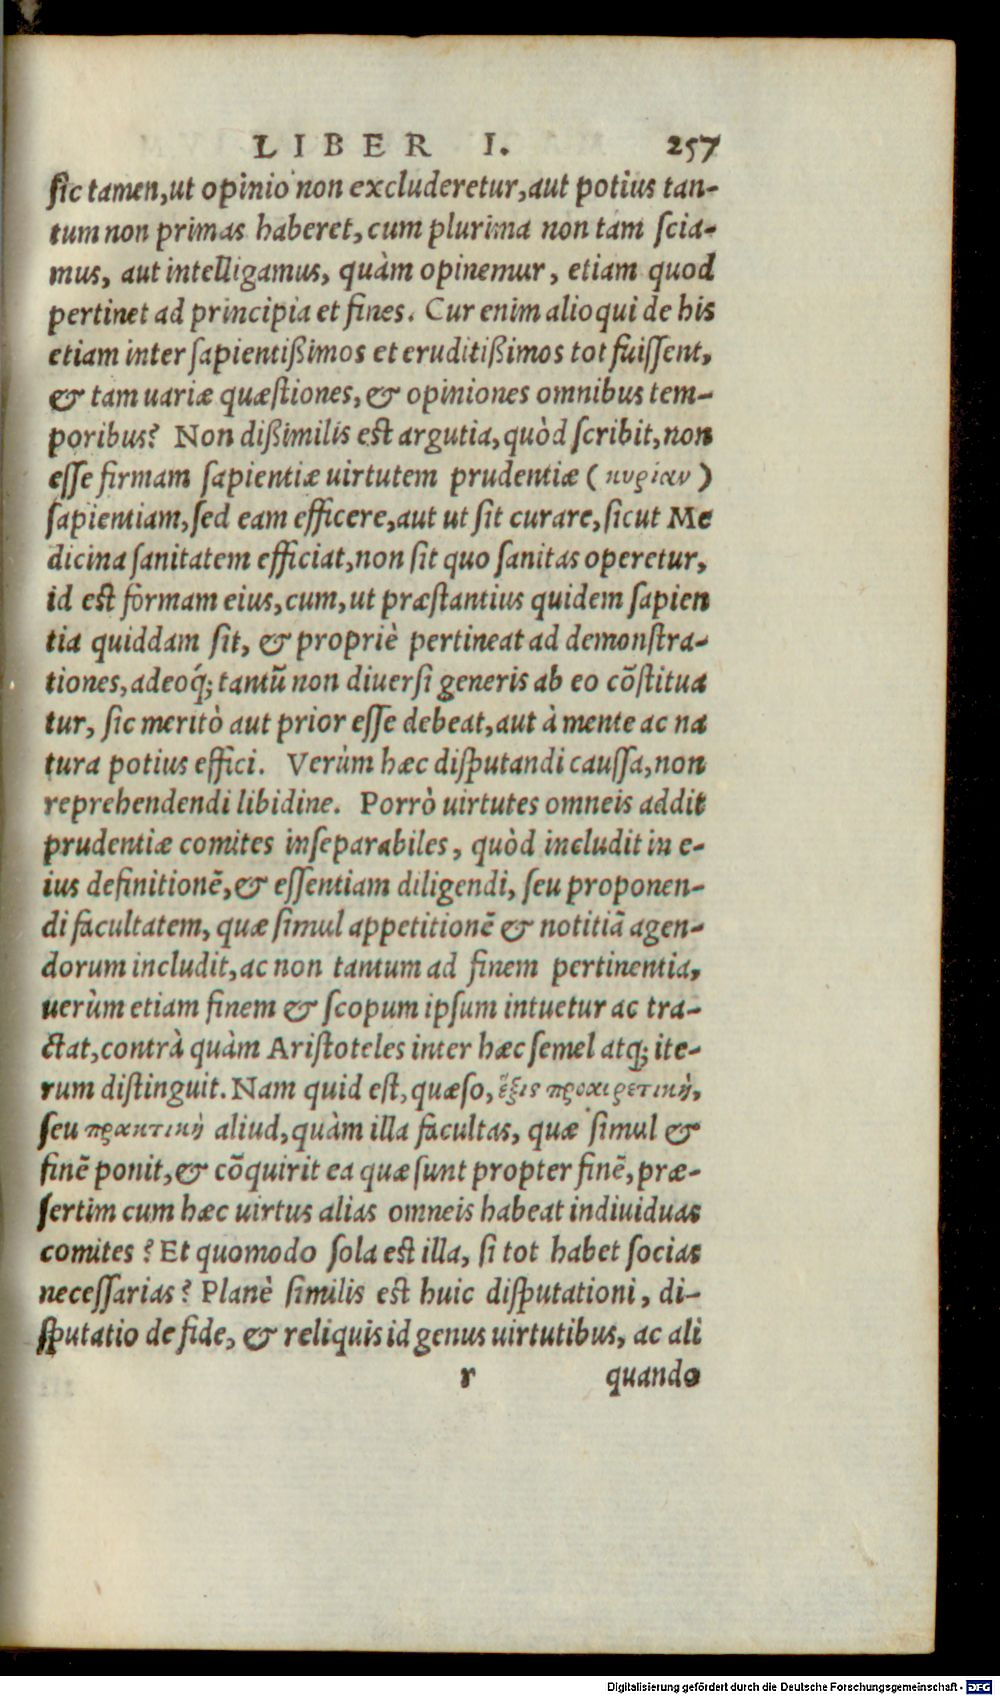 LIBER I. 257
sic tamen, ut opinio non excluderetur, aut potius tan-
tum non primas haberet, cum plurima non tam scia-
mus, aut intelligamus, quàm opinemur, etiam quod
pertinet ad principia et fines. Cur enim alioqui de his
etiam inter sapientißimos et eruditißimos tot fuissent,
& tam uariæ quæstiones, & opiniones omnibus tem-
poribus? Non dißimilis est argutia, quòd scribit, non
esse firmam sapientiæ uirtutem prudentiæ (κυρίαν)
sapientiam, sed eam efficere, aut ut sit curare, sicut Me
dicina sanitatem efficiat, non sit quo sanitas operetur,
id est formam eius, cum, ut præstantius quidem sapien
tia quiddam sit, & propriè pertineat ad demonstra-
tiones, adeoq́; tantũ non diuersi generis ab eo cõstitua
tur, sic meritò aut prior esse debeat, aut à mente ac na
tura potius effici. Verùm hæc disputandi caussa, non
reprehendendi libidine. Porrò uirtutes omneis addit
prudentiæ comites inseparabiles, quòd includit in e-
ius definitionẽ, & essentiam diligendi, seu proponen-
di facultatem, quæ simul appetitionẽ & notitiã agen-
dorum includit, ac non tantum ad finem pertinentia,
uerùm etiam finem & scopum ipsum intuetur ac tra-
ctat, contrà quàm Aristoteles inter hæc semel atq; ite-
rum distinguit. Nam quid est, quæso, ἕξις προαιρετικὴ,
seu πρακτικὴ aliud, quàm illa facultas, quæ simul &
finẽ ponit, & cõquirit ea quæ sunt propter finẽ, præ-
sertim cum hæc uirtus alias omneis habeat indiuiduas
comites? Et quomodo sola est illa, si tot habet socias
necessarias? Planè similis est huic disputationi, di-
sputatio de fide, & reliquis id genus uirtutibus, ac ali
r quando
Digitalisierung gefördert durch die Deutsche Forschungsgemeinschaft - DFG